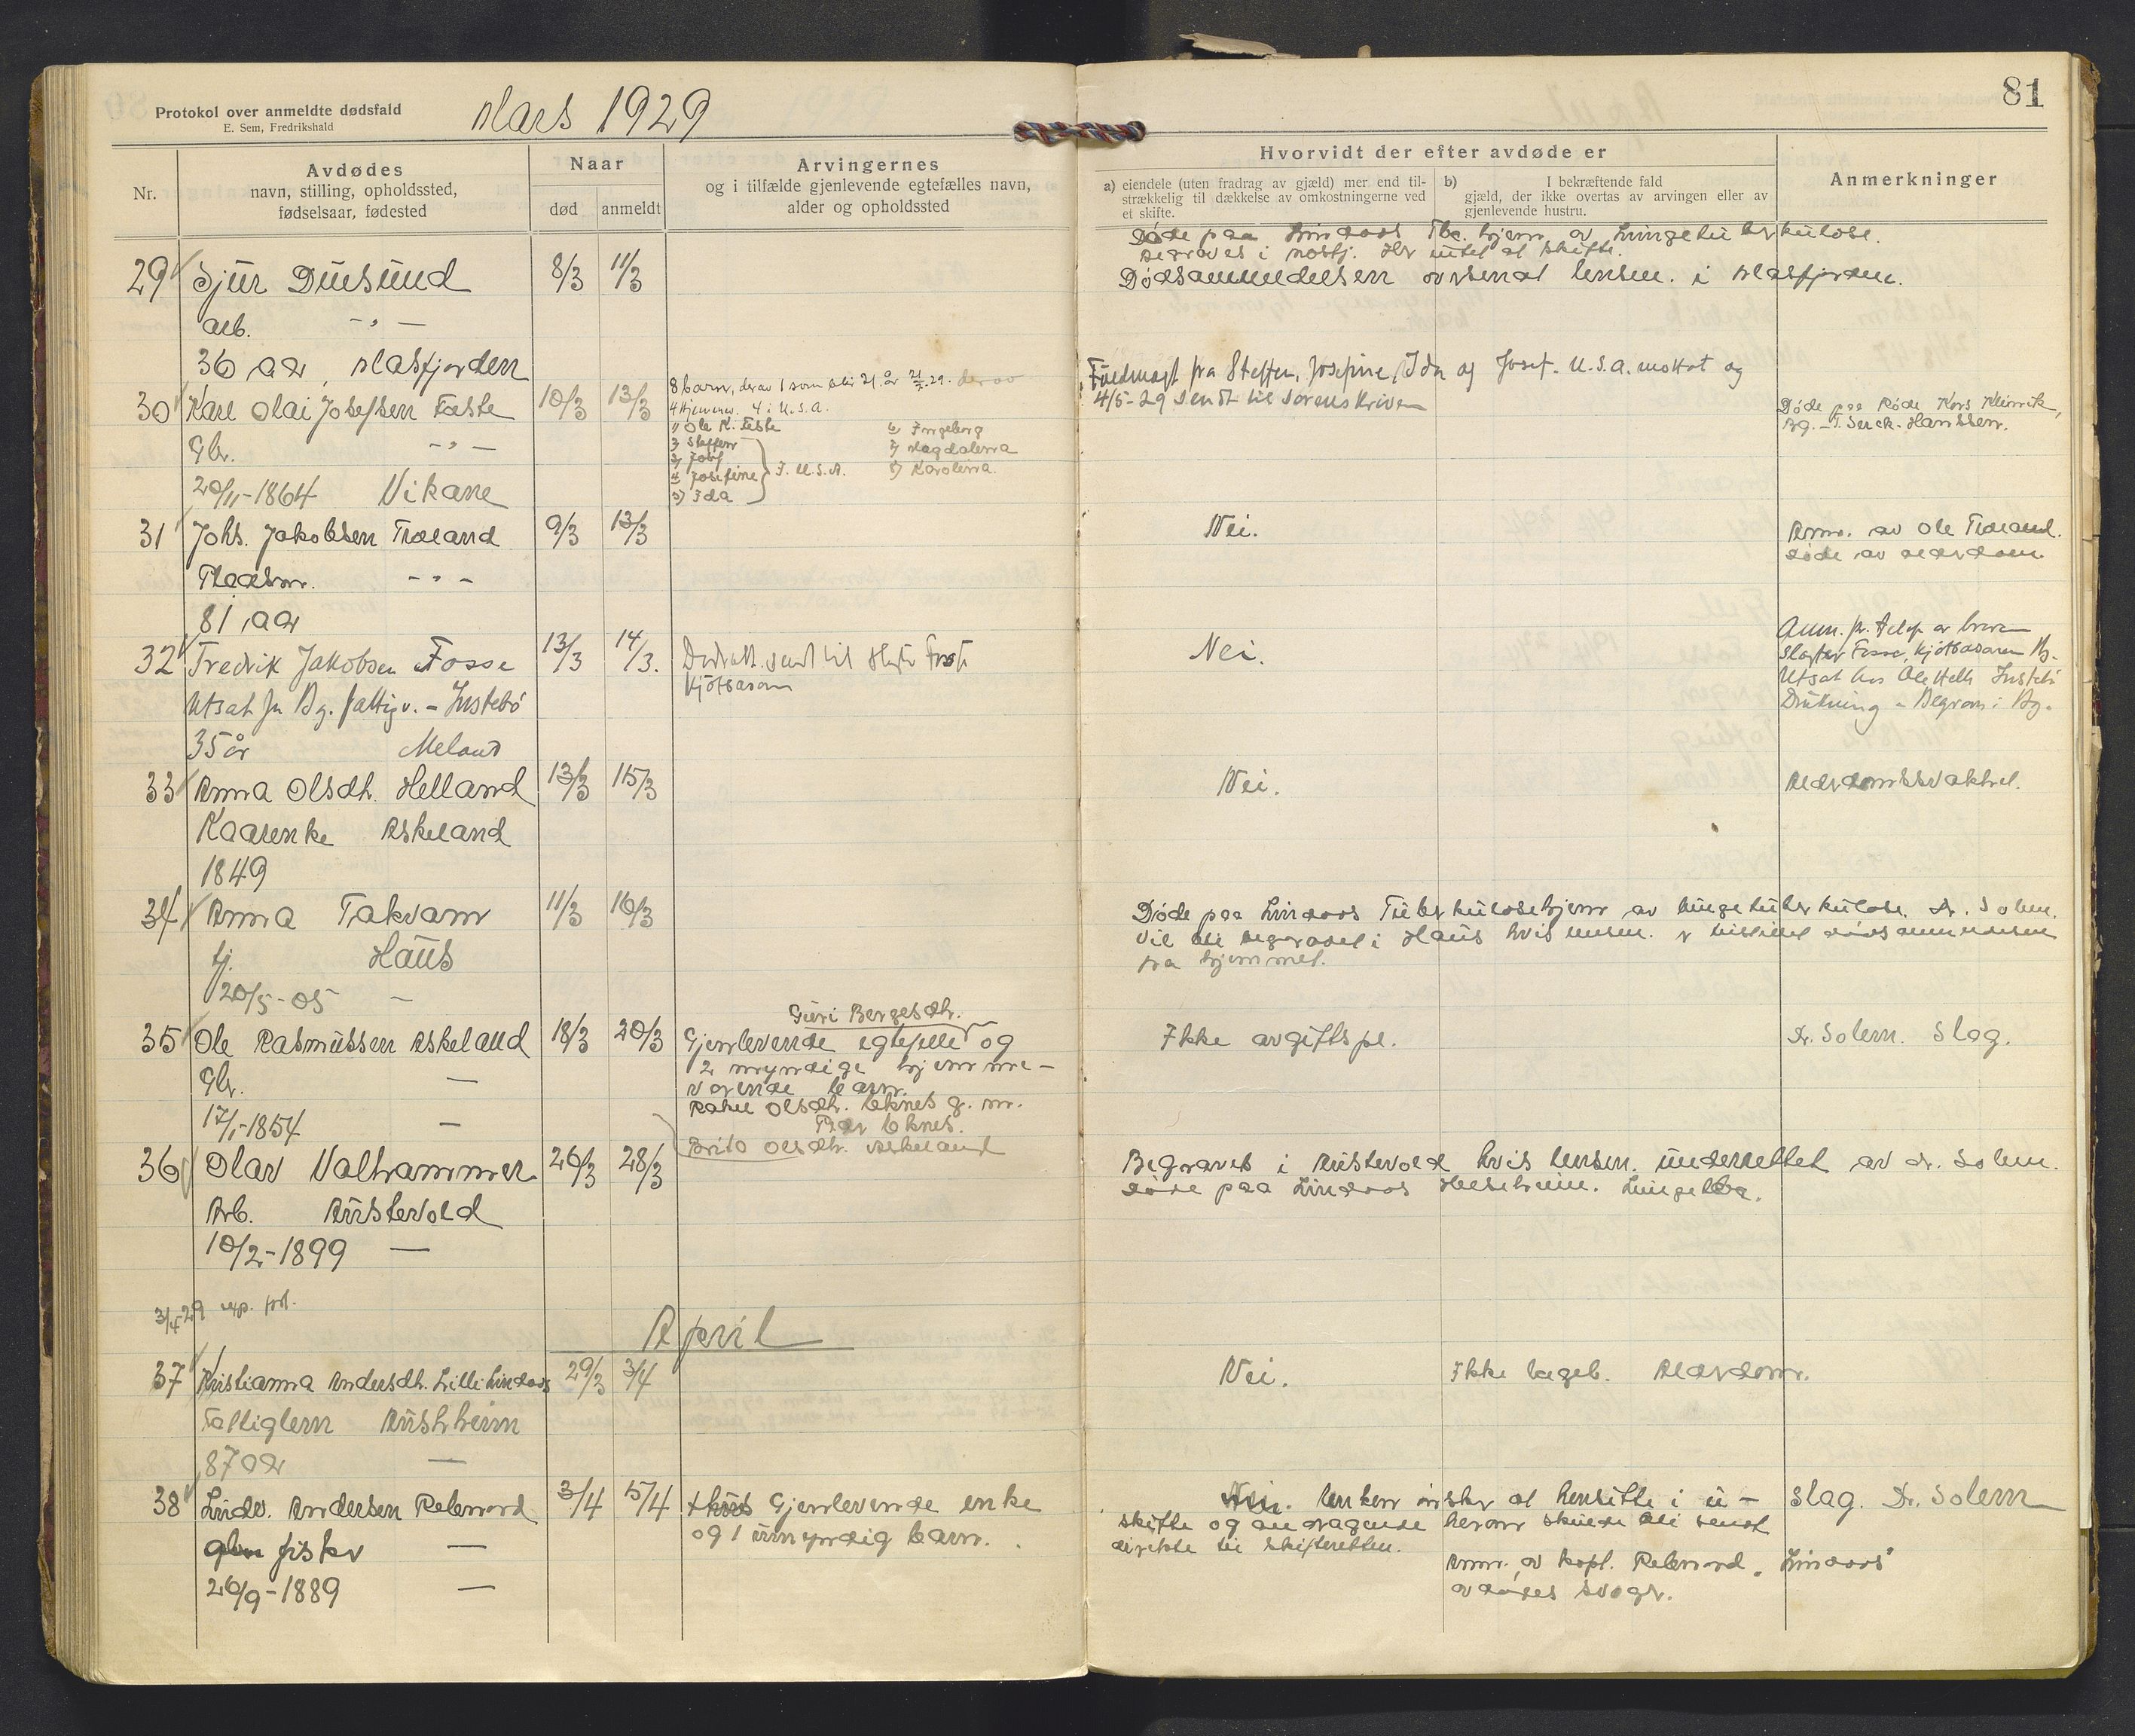 Protokol over anmeldte dødsfald
E. Sem, Fredrikshald
Mars 1929
Nr.
Avdødes
navn, stilling, opholdssted,
fødselsaar, fødested
Naar
død
anmeldt
Arvingernes
og i tilfælde gjenlevende egtefælles navn,
alder og opholdssted
29 Sjur Dusund 8/3 11/3
arb. - " -
36 aar, Masfjorden
30 Karl Olai Josefsen Feste 10/3 13/3
8 barn, derav 1 som blir 21 år
4 hjemmev. 4 i U.S.A.
Gbr. - " -
1) Ole K. Feste
2) Steffen
3) Josef
4) Josefine
5) Ida
I. U.S.A.
6) Ingeborg
7) Magdalena
8) Karolina
20/11-1864 Vikane
31 Johs. Jakobsen Træland 9/3 13/3
Pladsm. - " -
81 aar
32 Fredrik Jakobsen Fosse 13/3 14/3.
Dødsatt. sendt til
Kjøtbasarn
Utsat fra Bg. fattigv. - Justebø
35 år Meland
33 Anna Olsdtr. Helland 13/3 15/3
Kaarenke Askeland
1849
34 Anna Takvam 11/3 16/3
tj. Haus
20/5-05 -
35 Ole Rasmussen Askeland 18/3 20/3
Guri Bergesdtr.
Gjenlevende egtefelle og
2 myndige hjemme-
værende barn.
Gbr. -
Rahel Olsdtr. Eknes g. m.
Peder Eknes.
17/1-1854 -
Brita Olsdtr. Askeland
36 Olav Valhammer 26/3 28/3
Arb. Austevold
10/2-1899 -
3/4-29
April
37 Kristianna Andersdtr. Lille Lindaas 29/3 3/4
Fattiglem Austrheim
87 aar -
38 Ludv. Andersen Rebnord 3/4 5/4
Gjenlevende enke
og 1 umyndig barn.
fisker -
26/9-1889 -
81
Hvorvidt der efter avdøde er
a) eiendele (uten fradrag av gjæld) mer end til-
strækkelig til dækkelse av omkostningerne ved
et skifte.
b) I bekræftende fald
gjæld, der ikke overtas av arvingen eller av
gjenlevende hustru.
Anmerkninger
Døde paa Lindaas Tbc. hjem av lungetuberkulose.
Begraves i Masfj. Her intet at skifte.
Dødsanmeldelsen oversendt lensm. i Masfjorden.
Fuldmagt fra Steffen, Josefine, Ida og Josef. U.S.A. mottat og
4/5-29 sendt til sorenskriven
Døde paa Røde Kors Klinik,
Bg. - T. Serck-Hanssen.
Nei.
Anm. av Ole Træland.
Døde av alderdom
Nei.
Anm. pr. telef. av broren
Slagter Fosse, Kjøtbasaren Bg.
Utsat hos Ole Justebø
Drukning - Begraves i Bg.
Nei.
Alderdomssvakhet.
Døde paa Lindaas Tuberkulosehjem av lungetuberkulose. Dr. Solem.
Vil bli begravet i Haus hvis lensm. er tilstillet dødsanmeldelsen
fra hjemmet.
Ikke avgiftspl.
Dr. Solem. Slag.
Begraves i Austevold hvis lensm. underrettet av dr. Solem.
Døde paa Lindaas Helseheim. Lungetbc.
Nei.
Ikke lægeb. Alderdom.
Nei. Enken ønsker at hensitte i u-
skifte og andragende herom skulde bli sendt
direkte til skifteretten.
Slag. Dr. Solem
Anm. av kapt. Rebnord, "Lindaas"
avdødes svoger.